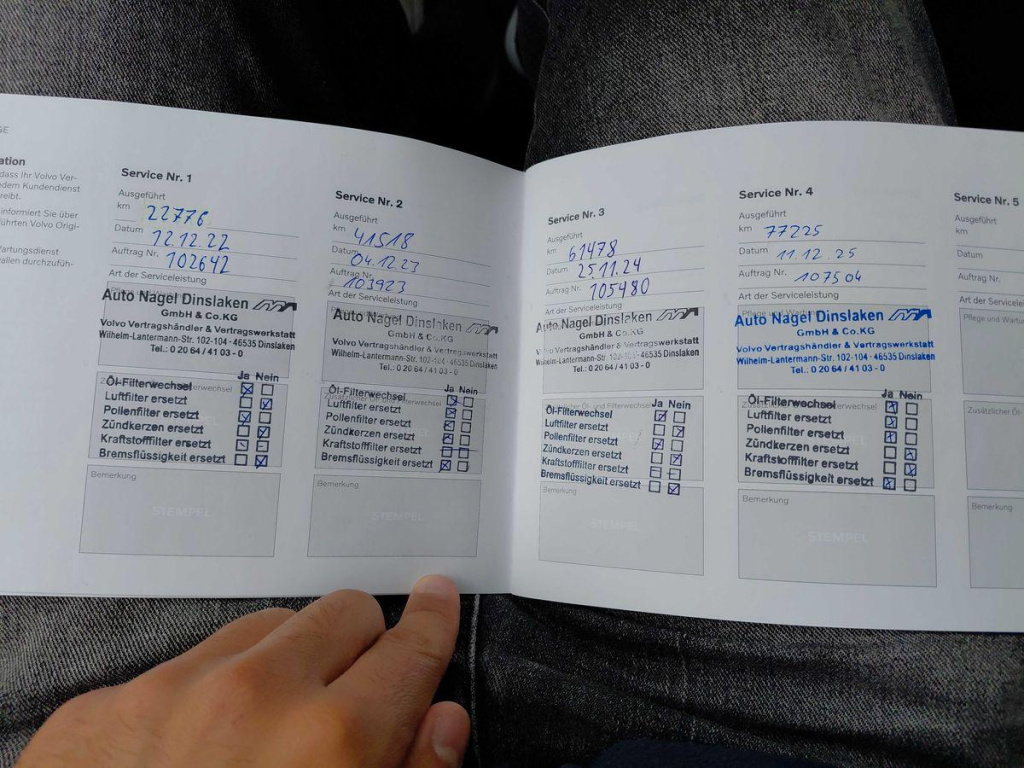 GE
ation
dass Ihr Volvo Ver-
edem Kundendienst
reibt.
informiert Sie über
führten Volvo Origi-
Wartungsdienst
allen durchzufüh-
Service Nr. 1
Ausgeführt
km 22776
Datum 12.12.22
Auftrag Nr. 102642
Art der Serviceleistung
Auto Nagel Dinslaken
GmbH & Co.KG
Volvo Vertragshändler & Vertragswerkstatt
Wilhelm-Lantermann-Str. 102-104 · 46535 Dinslaken
Tel.: 0 20 64 / 41 03 - 0
Ja Nein
Öl-Filterwechsel
Luftfilter ersetzt
Pollenfilter ersetzt
Zündkerzen ersetzt
Kraftstofffilter ersetzt
Bremsflüssigkeit ersetzt
Bemerkung
Service Nr. 2
Ausgeführt
km 41518
Datum 04.12.23
Auftrag Nr. 103923
Art der Serviceleistung
Auto Nagel Dinslaken
GmbH & Co.KG
Volvo Vertragshändler & Vertragswerkstatt
Wilhelm-Lantermann-Str. 102-104 · 46535 Dinslaken
Tel.: 0 20 64 / 41 03 - 0
Ja Nein
Öl-Filterwechsel
Luftfilter ersetzt
Pollenfilter ersetzt
Zündkerzen ersetzt
Kraftstofffilter ersetzt
Bremsflüssigkeit ersetzt
Bemerkung
STEMPEL
Service Nr. 3
Ausgeführt
km 61478
Datum 25.11.24
Auftrag Nr. 105480
Art der Serviceleistung
Auto Nagel Dinslaken
GmbH & Co.KG
Volvo Vertragshändler & Vertragswerkstatt
Wilhelm-Lantermann-Str. 102-104 · 46535 Dinslaken
Tel.: 0 20 64 / 41 03 - 0
Ja Nein
Öl-Filterwechsel
Luftfilter ersetzt
Pollenfilter ersetzt
Zündkerzen ersetzt
Kraftstofffilter ersetzt
Bremsflüssigkeit ersetzt
Bemerkung
STEMPEL
Service Nr. 4
Ausgeführt
km 77225
Datum 11.12.25
Auftrag Nr. 107504
Art der Serviceleistung
Auto Nagel Dinslaken
GmbH & Co.KG
Volvo Vertragshändler & Vertragswerkstatt
Wilhelm-Lantermann-Str. 102-104 · 46535 Dinslaken
Tel.: 0 20 64 / 41 03 - 0
Ja Nein
Öl-Filterwechsel
Luftfilter ersetzt
Pollenfilter ersetzt
Zündkerzen ersetzt
Kraftstofffilter ersetzt
Bremsflüssigkeit ersetzt
Bemerkung
STEMPEL
Service Nr. 5
Ausgeführt
km
Datum
Auftrag Nr.
Art der Serviceleistun
Pflege und Wartu
Zusätzlicher Öl-
Bemerkung